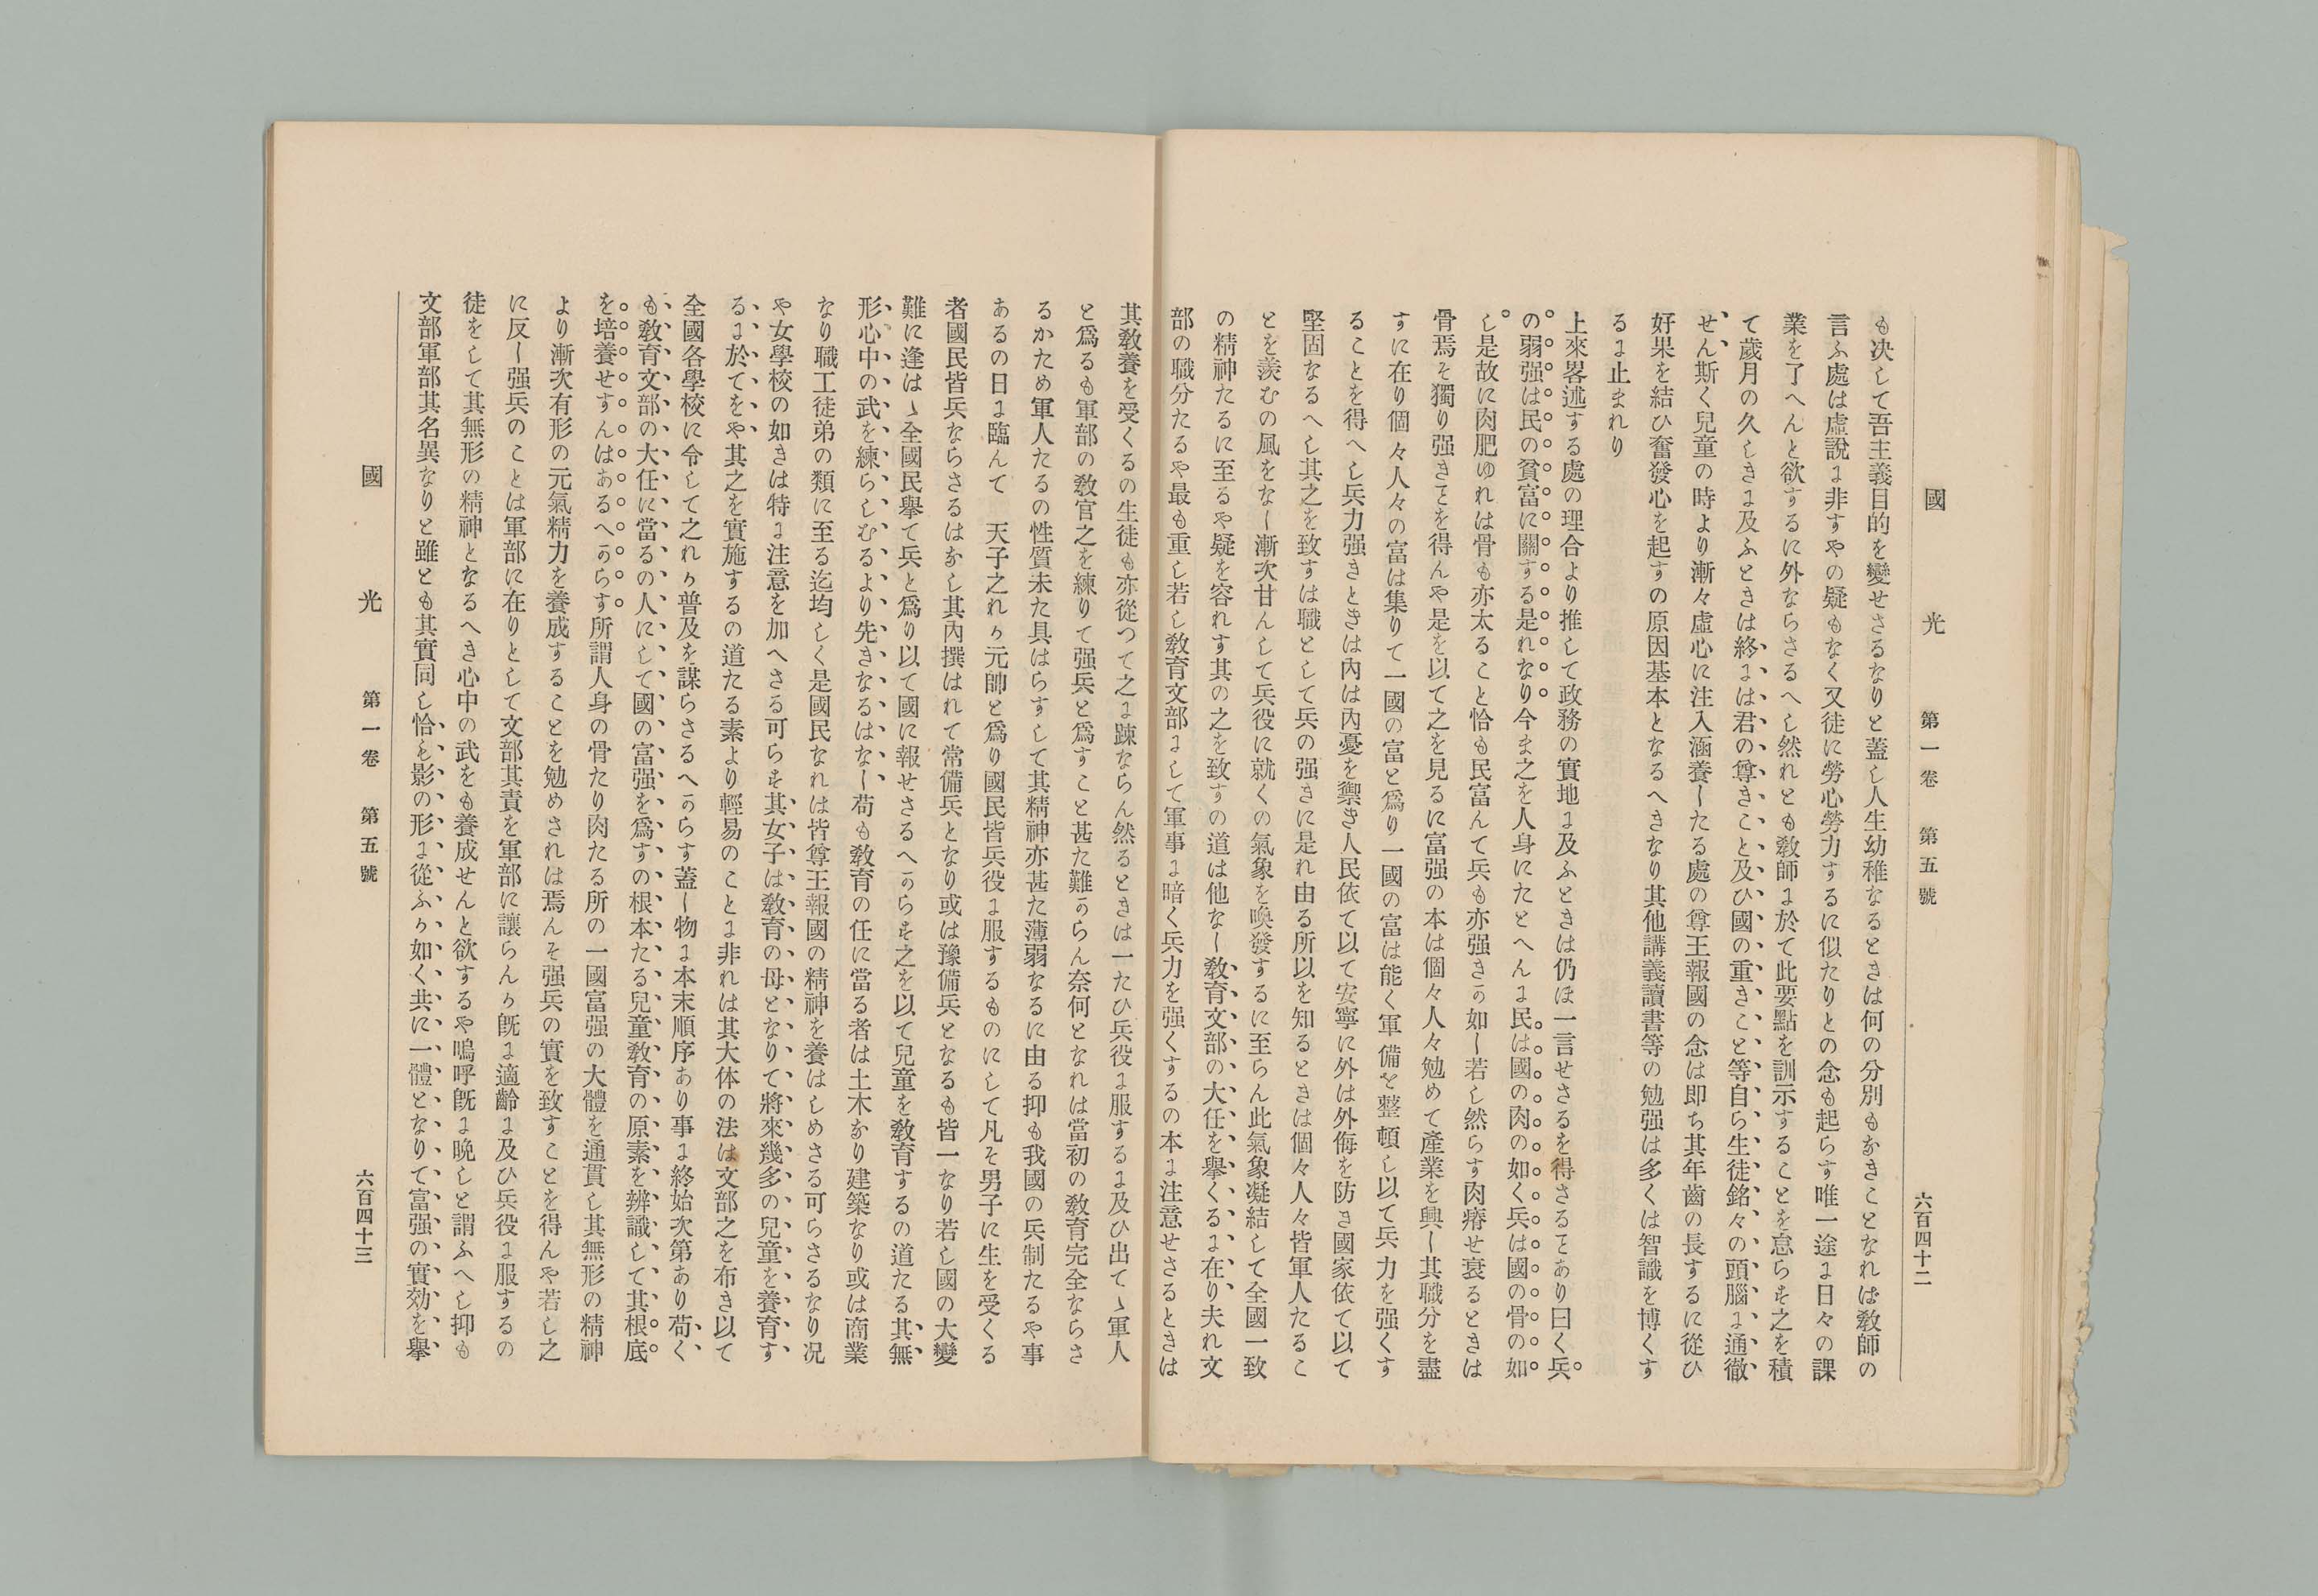 國光 第一卷 第五號 六百四十二
も决して吾主義目的を變せさるなりと蓋し人生幼稚なるときは何の分別もなきことなれは敎師の
言ふ處は虛說に非すやの疑もなく又徒に勞心勞力するに似たりとの念も起らす唯一途に日々の課
業を了へんと欲するに外ならさるへし然れとも敎師に於て此要點を訓示することを怠らす之を積
て歲月の久しきに及ふときは終には君の尊きこと及ひ國の重きこと等自ら生徒銘々の頭腦に通徹
せん斯く兒童の時より漸々虛心に注入涵養したる處の尊王報國の念は即ち其年齒の長するに從ひ
好果を結ひ奮發心を起すの原因基本となるへきなり其他講義讀書等の勉强は多くは智識を博くす
るに止まれり
上來畧述する處の理合より推して政務の實地に及ふときは仍ほ一言せさるを得さるヿあり曰く兵
の弱强は民の貧富に關する是れなり今ま之を人身にたとへんに民は國の肉の如く兵は國の骨の如
し是故に肉肥ゆれは骨も亦太ること恰も民富んて兵も亦强きか如し若し然らす肉瘠せ衰るときは
骨焉そ獨り强きヿを得んや是を以て之を見るに富强の本は個々人々勉めて產業を興し其職分を盡
すに在り個々人々の富は集りて一國の富と爲り一國の富は能く軍備を整頓し以て兵力を强くす
ることを得へし兵力强きときは內は內憂を禦き人民依て以て安寧に外は外侮を防き國家依て以て
堅固なるへし其之を致すは職として兵の强きに是れ由る所以を知るときは個々人々皆軍人たるこ
とを羨むの風をなし漸次甘んして兵役に就くの氣象を喚發するに至らん此氣象凝結して全國一致
の精神たるに至るや疑を容れす其の之を致すの道は他なし敎育文部の大任を擧くるに在り夫れ文
部の職分たるや最も重し若し敎育文部にして軍事に暗く兵力を强くするの本に注意せさるときは
其敎養を受くるの生徒も亦從つて之に踈ならん然るときは一たひ兵役に服するに及ひ出てゝ軍人
と爲るも軍部の敎官之を練りて强兵と爲すこと甚た難からん奈何となれは當初の敎育完全ならさ
るかため軍人たるの性質未た具はらすして其精神亦甚た薄弱なるに由る抑も我國の兵制たるや事
あるの日に臨んて　天子之れか元帥と爲り國民皆兵役に服するものにして凡そ男子に生を受くる
者國民皆兵ならさるはなし其內撰はれて常備兵となり或は豫備兵となるも皆一なり若し國の大變
難に逢はゝ全國民擧て兵と爲り以て國に報せさるへからす之を以て兒童を敎育するの道たる其無
形心中の武を練らしむるより先きなるはなし苟も敎育の任に當る者は土木なり建築なり或は商業
なり職工徒弟の類に至る迄均しく是國民なれは皆尊王報國の精神を養はしめさる可らさるなり况
や女學校の如きは特に注意を加へさる可らす其女子は敎育の母となりて將來幾多の兒童を養育す
るに於てをや其之を實施するの道たる素より輕易のことに非れは其大体の法は文部之を布き以て
全國各學校に令して之れか普及を謀らさるへからす蓋し物に本末順序あり事に終始次第あり苟く
も敎育文部の大任に當るの人にして國の富强を爲すの根本たる兒童敎育の原素を辨識して其根底
を培養せすんはあるへからす所謂人身の骨たり肉たる所の一國富强の大體を通貫し其無形の精神
より漸次有形の元氣精力を養成することを勉めされは焉んそ强兵の實を致すことを得んや若し之
に反し强兵のことは軍部に在りとして文部其責を軍部に讓らんか旣に適齡に及ひ兵役に服するの
徒をして其無形の精神となるへき心中の武をも養成せんと欲するや嗚呼旣に晚しと謂ふへし抑も
文部軍部其名異なりと雖とも其實同し恰も影の形に從ふか如く共に一體となりて富强の實効を擧
國光 第一卷 第五號 六百四十三